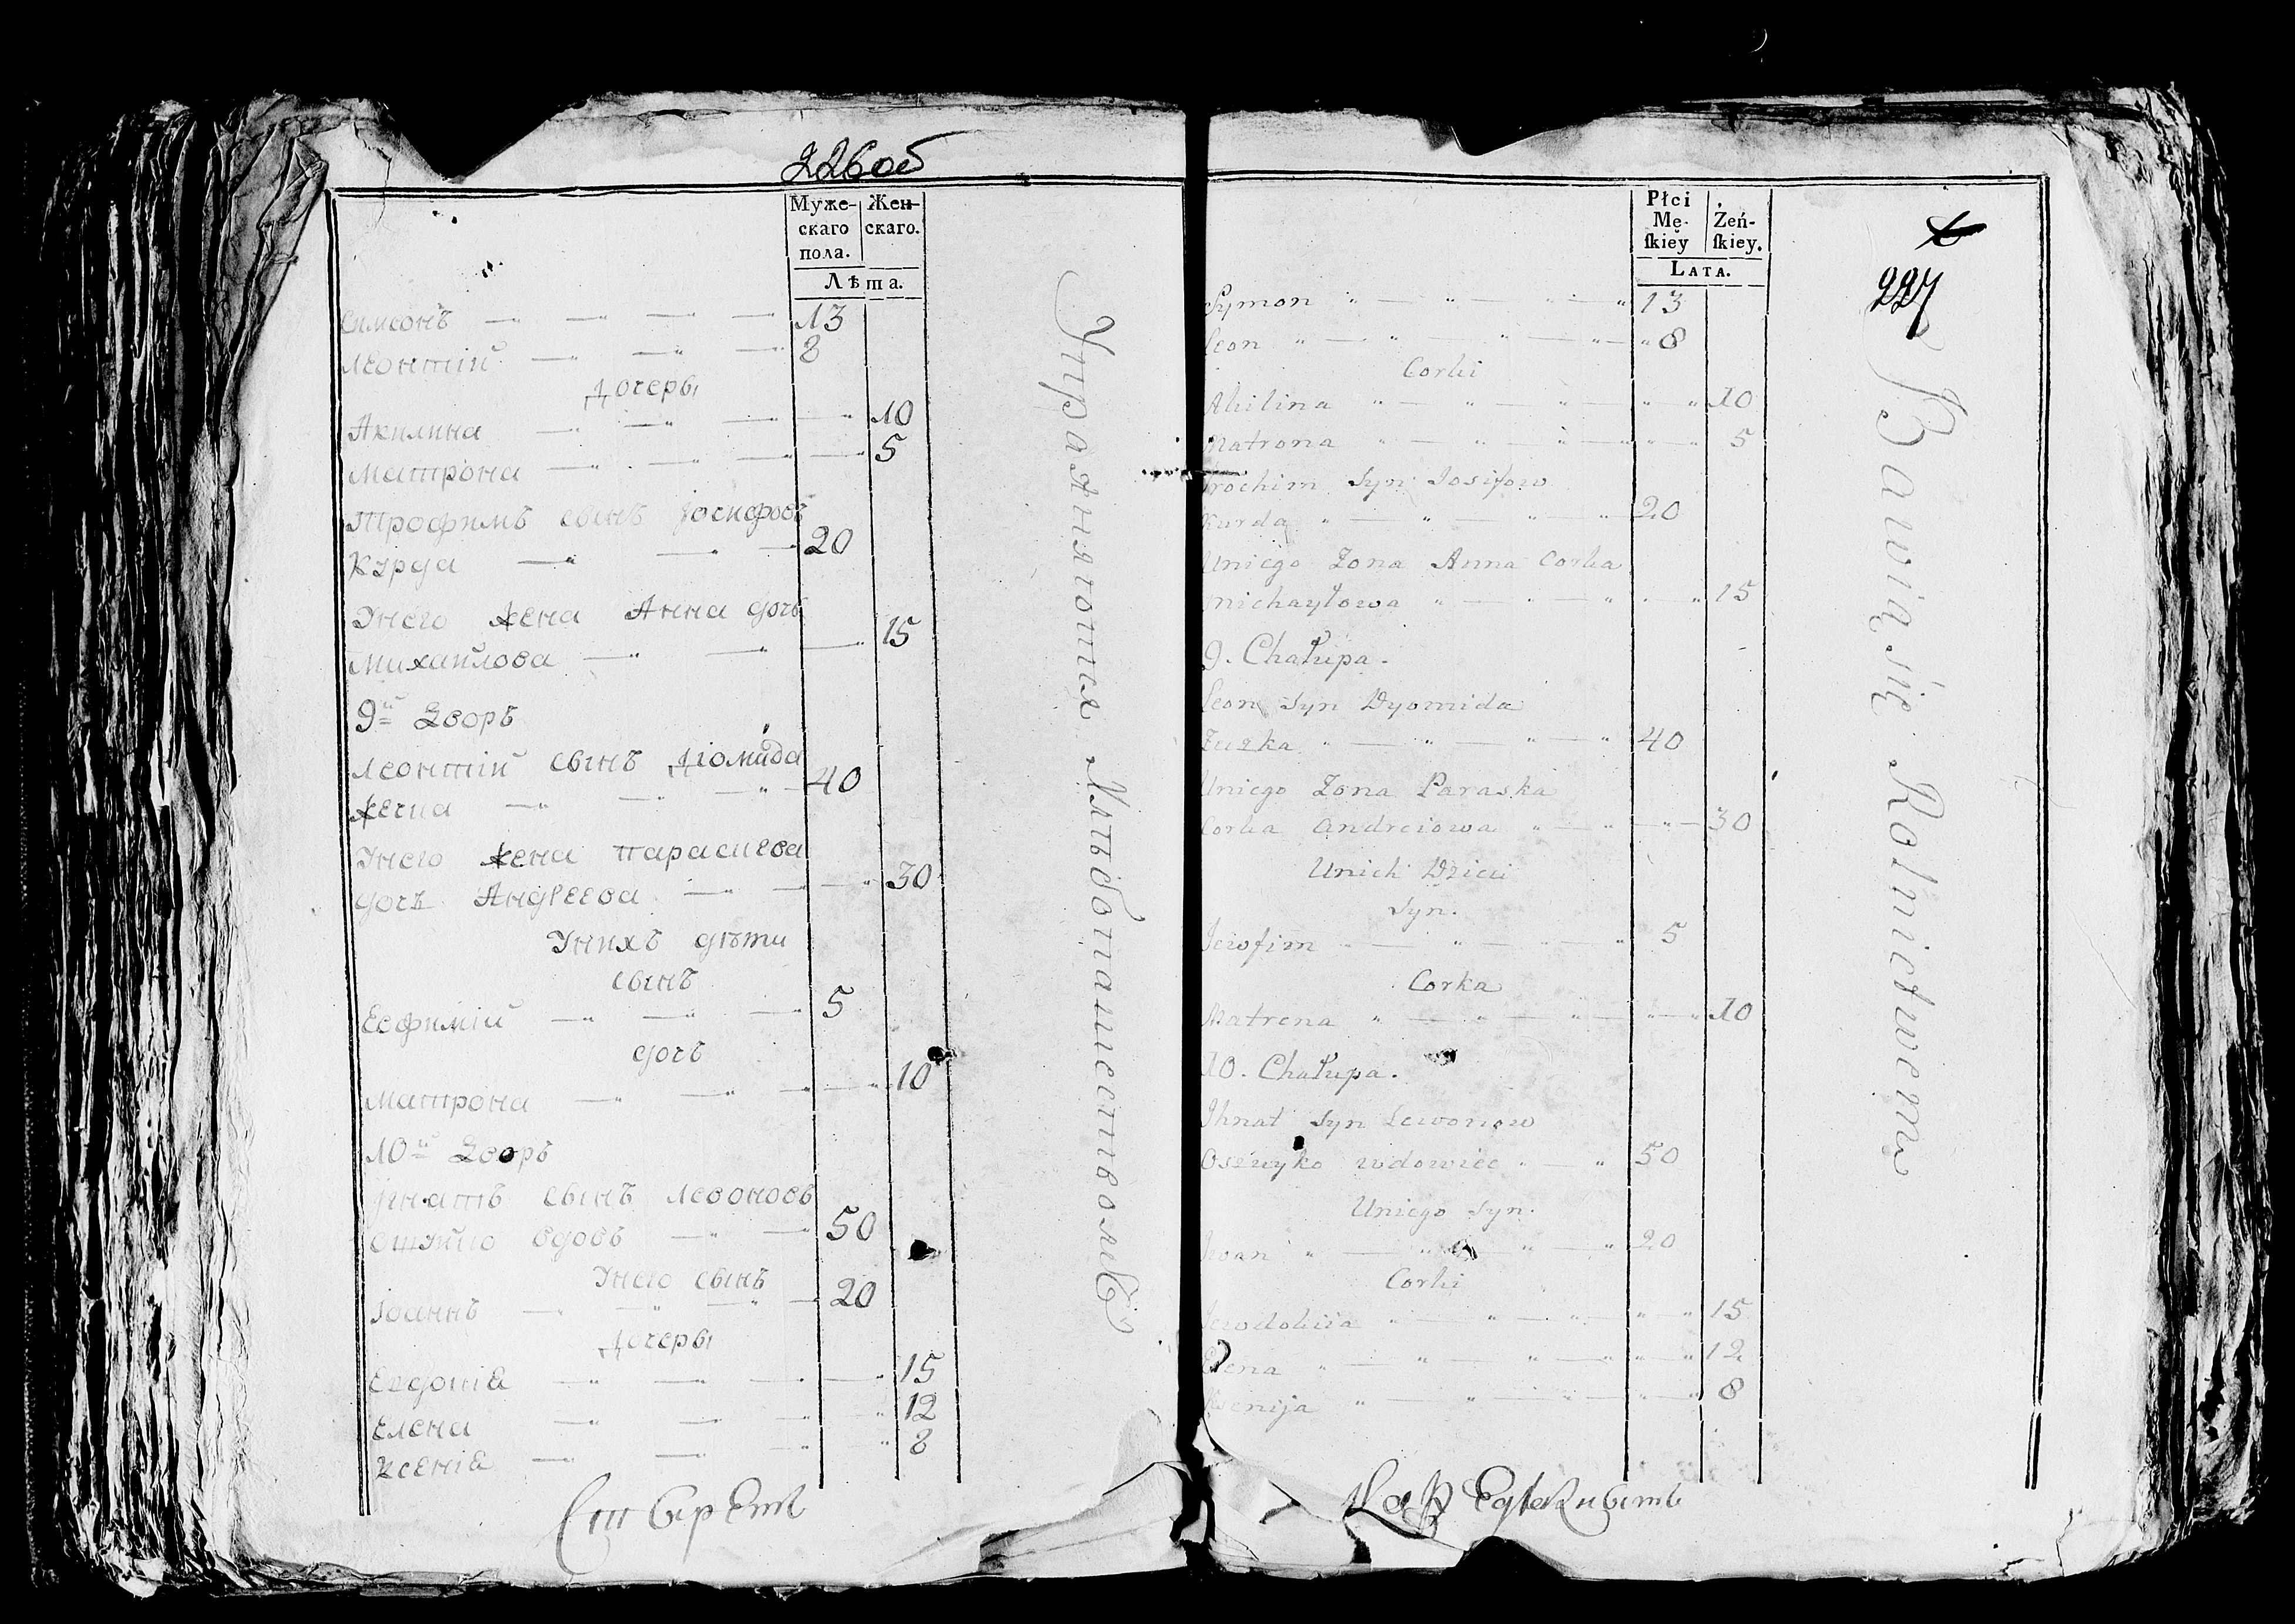 226об
Муже-
скаго
пола.
Жен-
скаго.
Лѣта.
Симеонъ 13
Леонтій 8
Дочеры
Акилина 10
Матрона 5
Трофимъ сынъ Іосифовъ
Курда 20
Унего жена Анна дочь
Михайлова 15
9й Дворъ
Леонтій сынъ Діомида
40
Унего жена Параскева
дочь Андреева 30
Унихъ дѣти
сынъ
Евфимій 5
дочь
Матрона 10
10й Дворъ
Игнатъ сынъ Левоновъ
вдовъ 50
Унего сынъ
Іоаннъ 20
Дочеры
15
Елена 12
Ксенія 8
Упражняются Хлѣбопашествомъ
Płci
Mę-
ſkiey
Żeń-
ſkiey.
Lata.
227
Symon 13
Leon 8
Corki
Akilina 10
Matrona 5
Trochim Syn Josifow
Kurda 20
Uniego Zona Anna Corka
Michayłowa 15
9. Chałupa.
Leon Syn Dyomida
40
Uniego Zona Paraska
Corka Andreiowa 30
Unich Dzieci
Syn.
Jewfim 5
Corka
Matrena 10
10. Chałupa.
Ihnat Syn Lewonow
wdowiec 50
Uniego Syn.
Iwan 20
Corki
Jewdokiia 15
Elena 12
Ksenija 8
Bawią się Rolnictwem